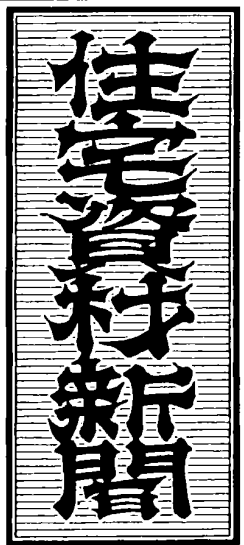 住宅資材新聞